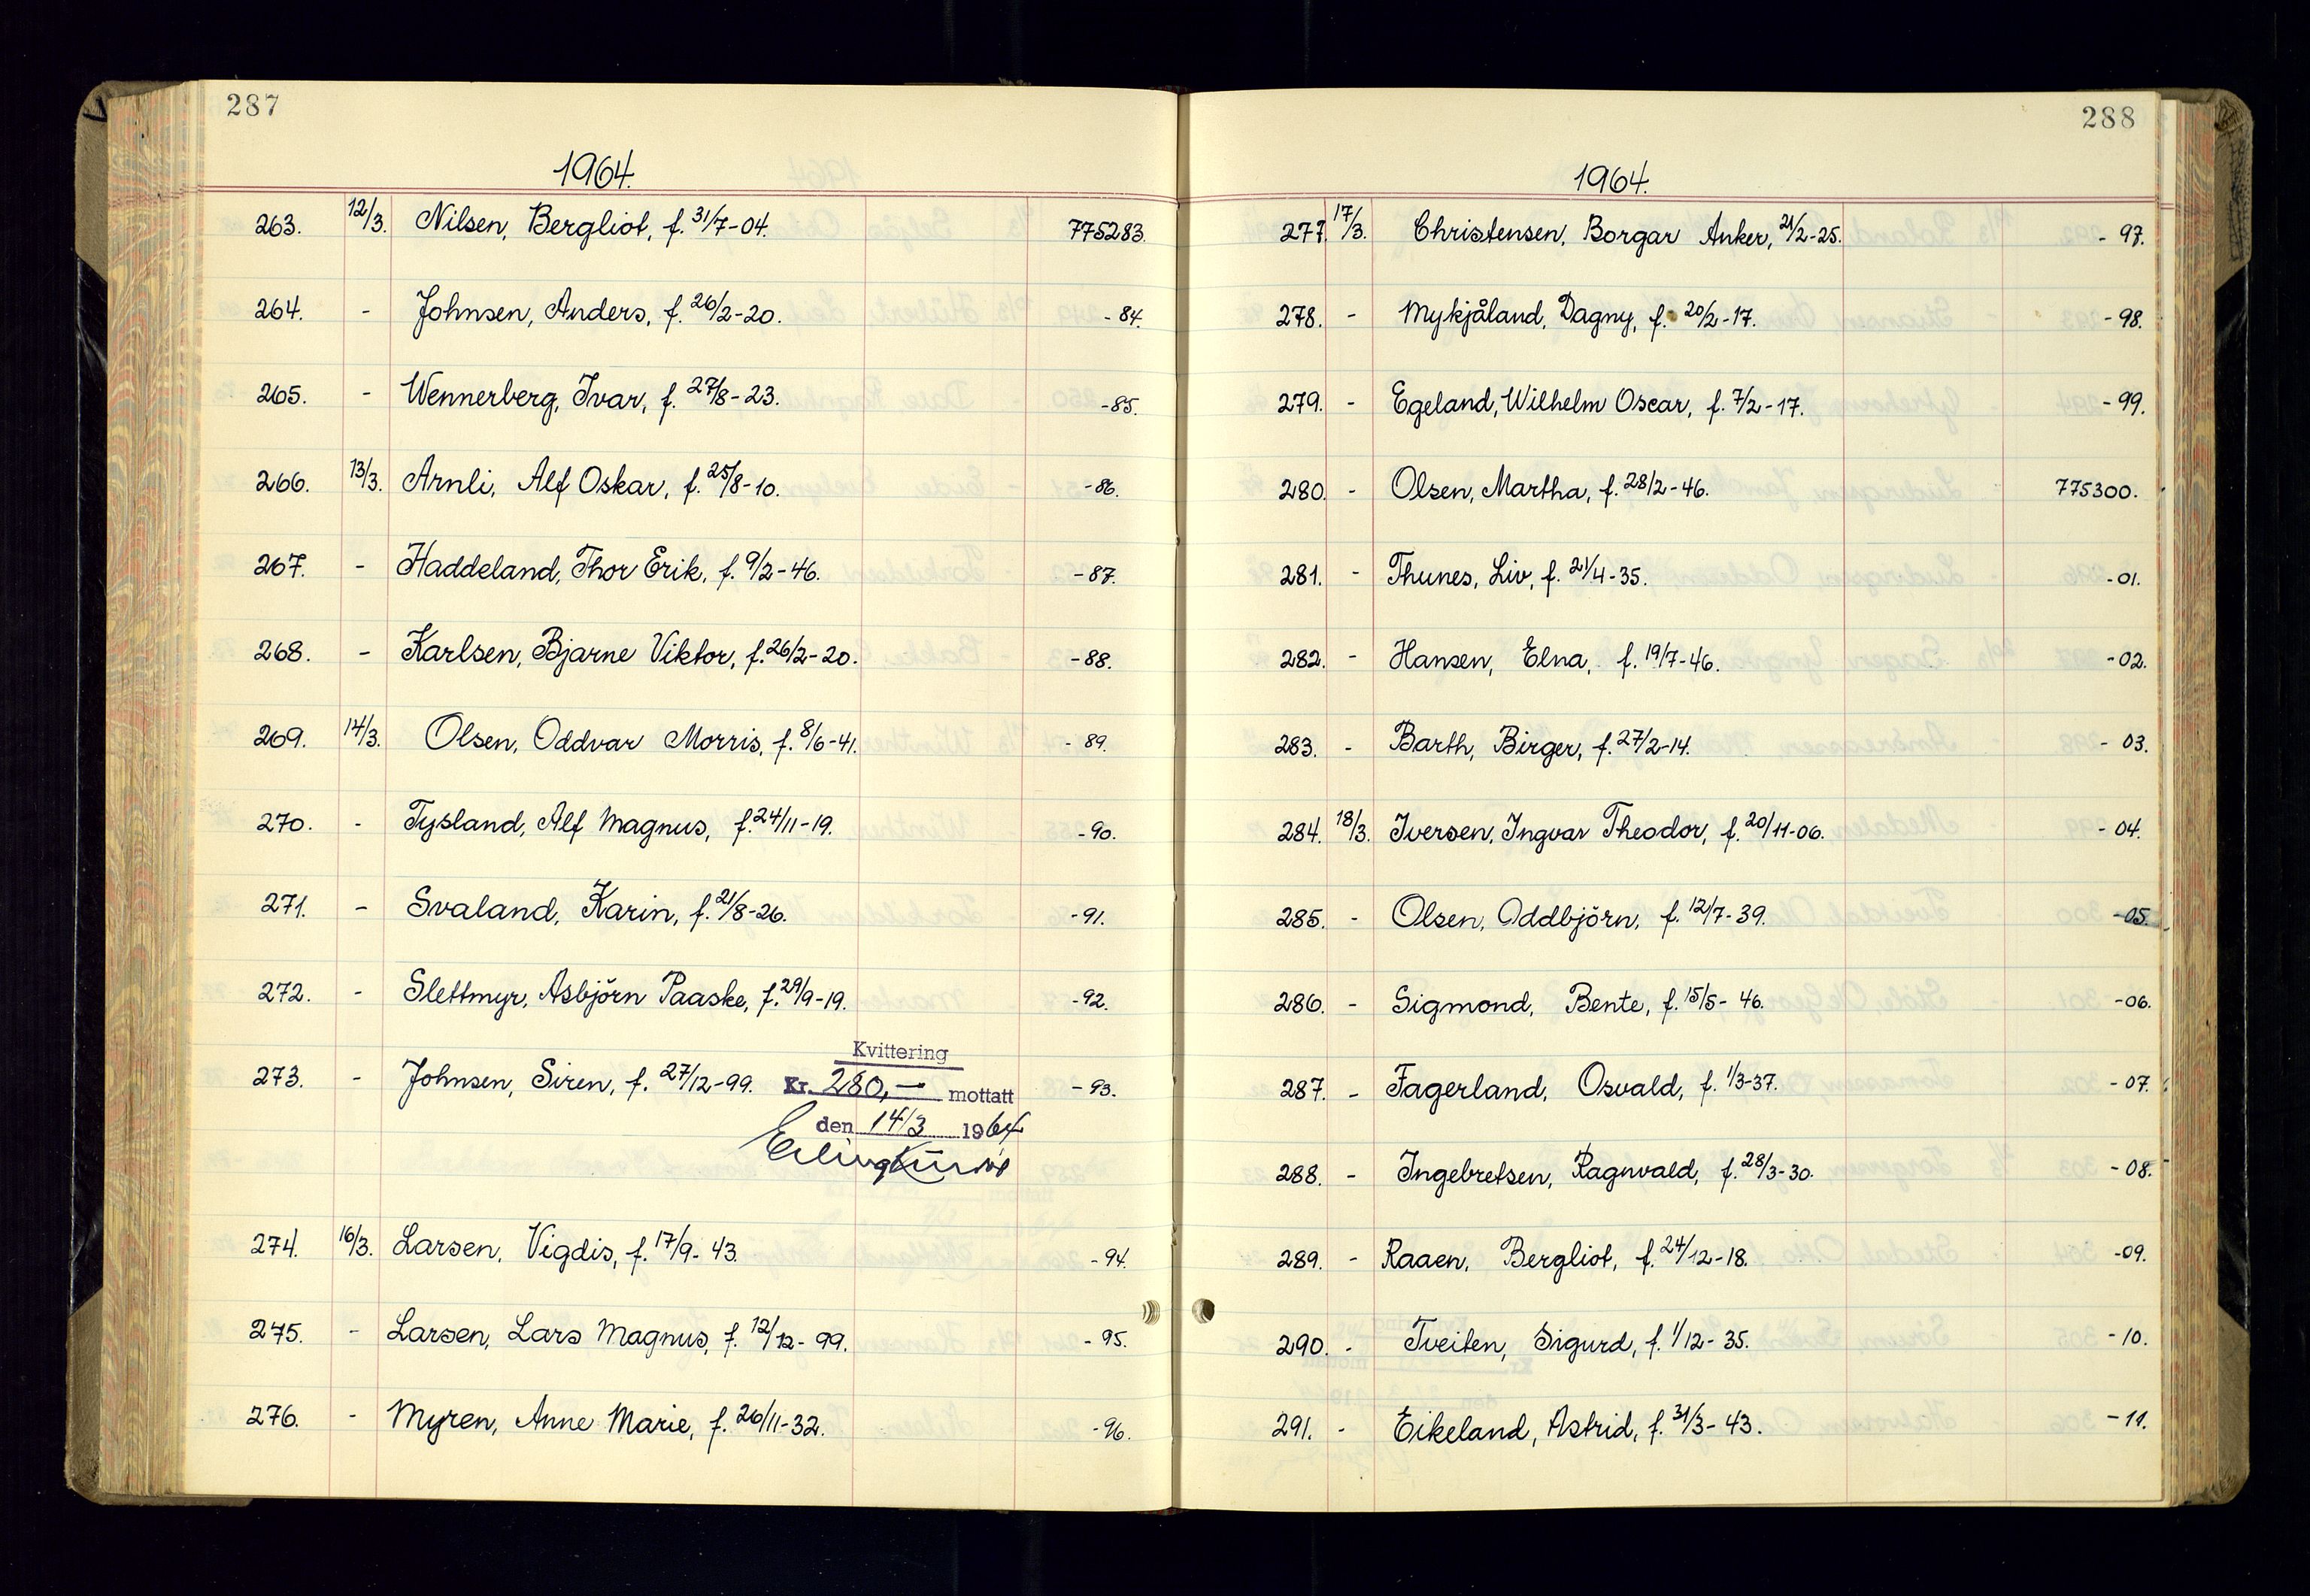 287
1964.
263. 12/3. Nilsen, Bergliot, f. 31/7-04. 775283.
264. - Johnsen, Anders, f. 26/2-20. -84.
265. - Wennerberg, Ivar, f. 27/8-23. -85.
266. 13/3. Arnli, Alf Oskar, f. 25/8-10. -86.
267. - Haddeland, Thor Erik, f. 9/2-46. -87.
268. - Karlsen, Bjarne Viktor, f. 26/2-20. -88.
269. 14/3. Olsen, Oddvar Morris, f. 8/6-41. -89.
270. - Tysland, Alf Magnus, f. 24/11-19. -90.
271. - Svaland, Karin, f. 21/8-26. -91.
272. - Slettmyr, Asbjörn Paaske, f. 29/9-19. -92.
Kvittering
273. - Johnsen, Siren, f. 27/12-99. Kr. 280,- mottatt -93.
den 14/3 1964
274. 16/3. Larsen, Vigdis, f. 17/9-43. -94.
275. - Larsen, Lars Magnus, f. 12/12-99. -95.
276. - Myren, Anne Marie, f. 26/11-32. -96.
288
1964.
277. 17/3. Christensen, Borgar Anker, 21/2-25. -97.
278. - Mykjåland, Dagny, f. 20/2-17. -98.
279. - Egeland, Wilhelm Oscar, f. 7/2-17. -99.
280. - Olsen, Martha, f. 28/2-46. 775300.
281. - Thunes, Liv, f. 21/4-35. -01.
282. - Hansen, Elna, f. 19/7-46. -02.
283. - Barth, Birger, f. 27/2-14. -03.
284. 18/3. Iversen, Ingvar Theodor, f. 20/11-06. -04.
285. - Olsen, Oddbjörn, f. 12/7-39. -05.
286. - Sigmond, Bente, f. 15/5-46. -06.
287. - Fagerland, Osvald, f. 1/3-37. -07.
288. - Ingebretsen, Ragnvald, f. 28/3-30. -08.
289. - Raaen, Bergliot, f. 24/12-18. -09.
290. - Tveiten, Sigurd, f. 1/12-35. -10.
291. - Eikeland, Astrid, f. 31/3-43. -11.